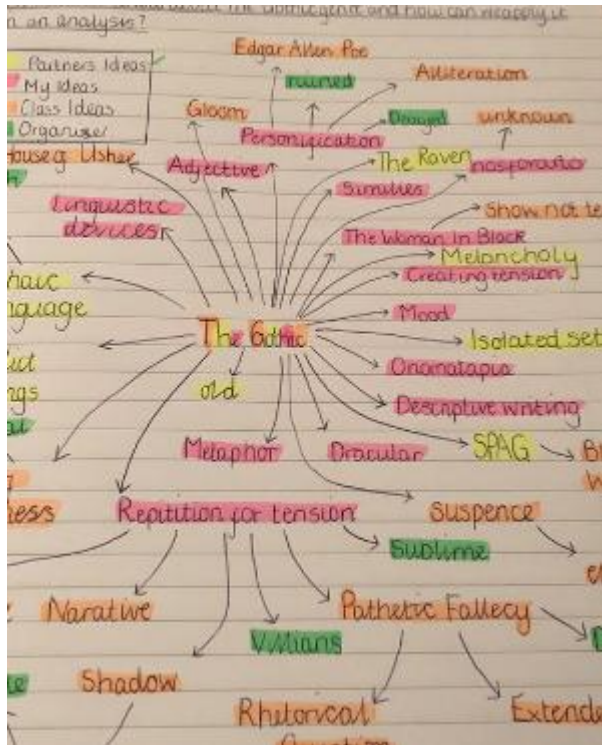 the Gothic genre and how can I apply it
in an analysis?
Partners Ideas
My Ideas
Class Ideas
Organiser
House of Usher
Edgar Allen Poe
ruined
Alliteration
Gloom
Personification
Decayed
unknown
Adjective
The Raven
nosforatio
Similies
Linguistic
devices
Show not te
The Woman In Black
Melancholy
Creating tension
haic
nguage
Mood
The Gothic
Isolated set
old
Onomatapia
ngs
Descriptive writing
Metaphor
Dracular
SPAG
ness
Repitition for tension
Suspence
Sublime
Narative
Pathetic Fallecy
Villians
Shadow
Rhetorical
Extende